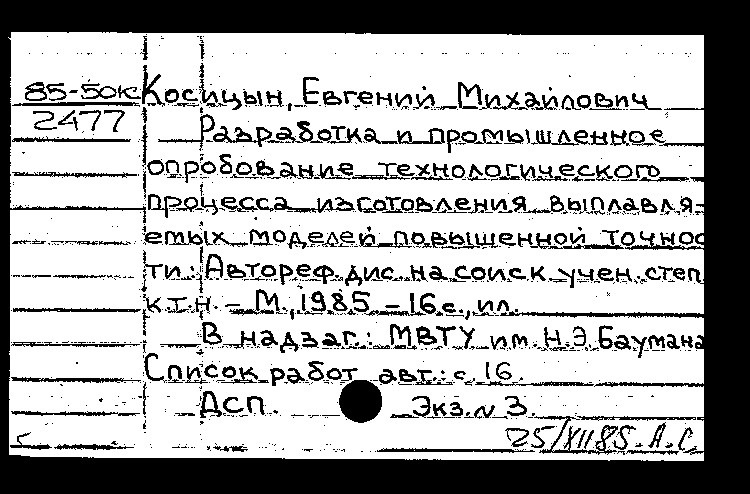 85-50к Косицын, Евгений Михайлович
2477 Разработка и промышленное
опробование технологического
процесса изготовления выплавля-
емых моделей повышенной точнос
ти: Автореф. дис. на соиск. учен. степ.
к.т.н. - М., 1985 - 16 с., ил.
В надзаг.: МВТУ им. Н.Э. Баумана
Список работ авт.: с. 16.
ДСП. Экз. N 3.
25/XII85. А.С.